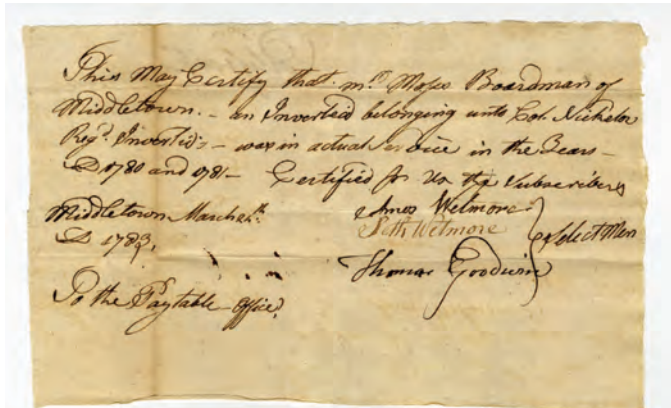 This May Certify that mr. Moses Boardman of
Middletown. - an Invertid belonging unto Col. Nichola
Regt. Invertids - was in actual service in the Years -
D 1780 and 1781 - Certified for Us the Subscribers
Middletown March
D 1783,
Amos Wetmore
Seth Wetmore
Thomas Goodwin
Select Men
To the Paytable - Office